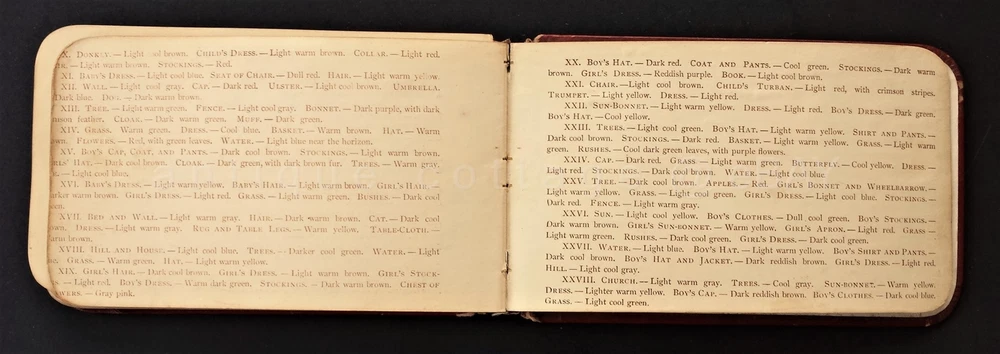 X. Donkey. — Light cool brown. Child's Dress. — Light warm brown. Collar. — Light red.
— Light warm brown. Stockings. — Red.
XI. Baby's Dress. — Light cool blue. Seat of Chair. — Dull red. Hair. — Light warm yellow.
XII. Wall. — Light cool gray. Cap. — Dark red. Ulster. — Light cool brown. Umbrella.
Dark blue. Dog. — Dark warm brown.
XIII. Tree. — Light warm green. Fence. — Light cool gray. Bonnet. — Dark purple, with dark
feather. Cloak. — Dark warm green. Muff. — Dark green.
XIV. Grass. Warm green. Dress. — Cool blue. Basket. — Warm brown. Hat. — Warm
Flowers. — Red, with green leaves. Water. — Light blue near the horizon.
XV. Boy's Cap, Coat, and Pants. — Dark cool brown. Stockings. — Light warm brown.
Hat. — Dark cool brown. Cloak. — Dark green, with dark brown fur. Trees. — Warm gray.
— Light cool blue.
XVI. Baby's Dress. — Light warm yellow. Baby's Hair. — Light warm brown. Girl's Hair. —
warm brown. Girl's Dress. — Light red. Grass. — Light warm green. Bushes. — Dark cool
XVII. Bed and Wall. — Light warm gray. Hair. — Dark warm brown. Cat. — Dark cool
Dress. — Light warm gray. Rug and Table Legs. — Warm yellow. Table-Cloth. —
warm brown.
XVIII. Hill and House. — Light cool blue. Trees. — Darker cool green. Water. — Light
Grass. — Warm green. Hat. — Light warm yellow.
XIX. Girl's Hair. — Dark cool brown. Girl's Dress. — Light warm brown. Girl's Stock-
— Light red. Boy's Dress. — Warm dark green. Stockings. — Dark warm brown. Chest of
— Gray pink.
XX. Boy's Hat. — Dark red. Coat and Pants. — Cool green. Stockings. — Dark warm
brown. Girl's Dress. — Reddish purple. Book. — Light cool brown.
XXI. Chair. — Light cool brown. Child's Turban. — Light red, with crimson stripes.
Trumpet. — Light yellow. Dress. — Light red.
XXII. Sun-Bonnet. — Light warm yellow. Dress. — Light red. Boy's Dress. — Dark green.
Boy's Hat. — Cool yellow.
XXIII. Trees. — Light cool green. Boy's Hat. — Light warm yellow. Shirt and Pants. —
Dark cool brown. Stockings. — Dark red. Basket. — Light warm yellow. Grass. — Light warm
green. Rushes. — Cool dark green leaves, with purple flowers.
XXIV. Cap. — Dark red. Grass — Light warm green. Butterfly. — Cool yellow. Dress. —
Light red. Stockings. — Dark cool brown. Water. — Light cool blue.
XXV. Tree. — Dark cool brown. Apples. — Red. Girl's Bonnet and Wheelbarrow. —
Light warm yellow. Grass. — Light cool green. Girl's Dress. — Light cool blue. Stockings. —
Dark red. Fence. — Light warm gray.
XXVI. Sun. — Light cool yellow. Boy's Clothes. — Dull cool green. Boy's Stockings. —
Dark warm brown. Girl's Sun-bonnet. — Warm yellow. Girl's Apron. — Light red. Grass —
Light warm green. Rushes. — Dark cool green. Girl's Dress. — Dark cool green.
XXVII. Water. — Light blue. Boy's Hat. — Light warm yellow. Boy's Shirt and Pants. —
Dark cool brown. Boy's Hat and Jacket. — Dark reddish brown. Girl's Dress. — Light red.
Hill. — Light cool gray.
XXVIII. Church. — Light warm gray. Trees. — Cool gray. Sun-Bonnet. — Warm yellow.
Dress. — Lighter warm yellow. Boy's Cap. — Dark reddish brown. Boy's Clothes. — Dark cool blue.
Grass. — Light cool green.